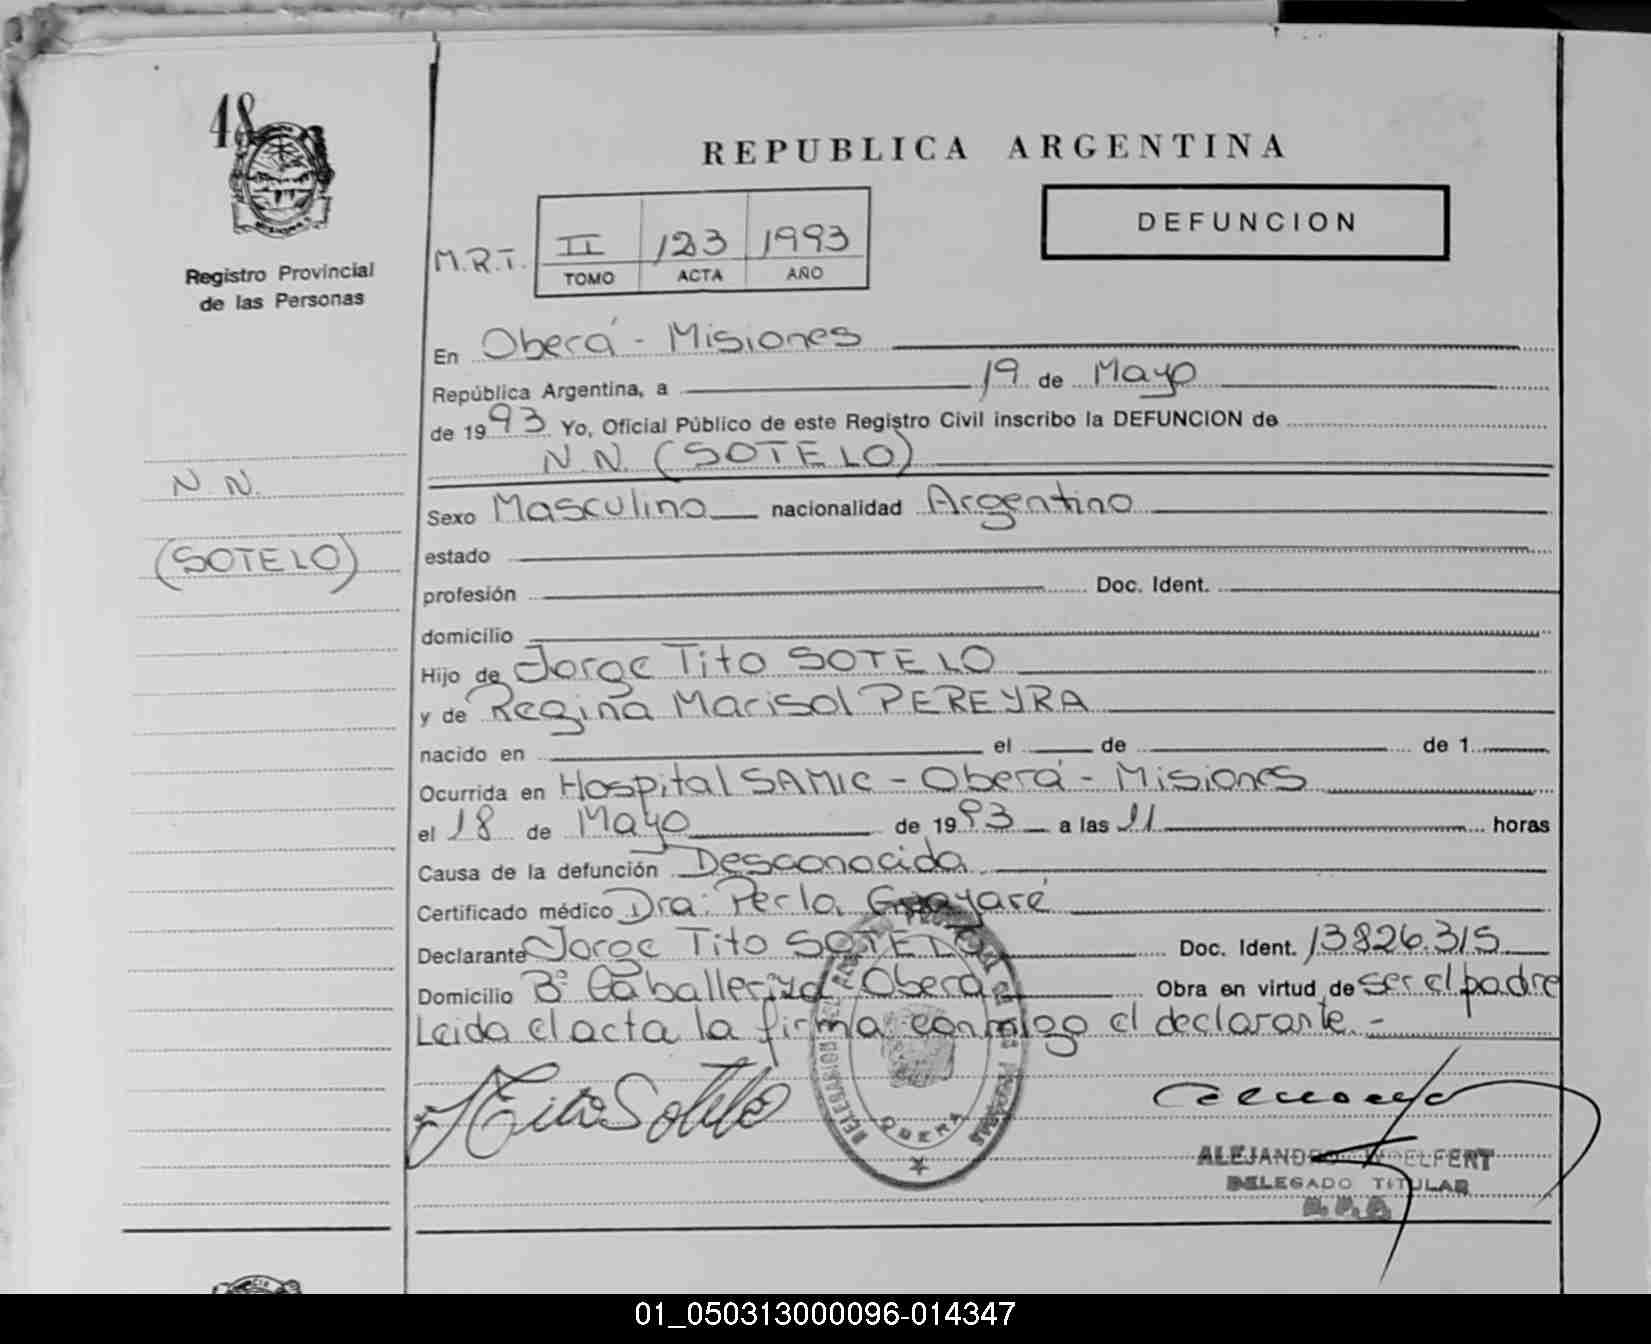 48
Registro Provincial
de las Personas
N. N.
(SOTELO)
REPUBLICA ARGENTINA
DEFUNCION
M.R.T.
II 123 1993
TOMO ACTA AÑO
En Oberá - Misiones
República Argentina, a 19 de Mayo
de 1993 Yo, Oficial Público de este Registro Civil inscribo la DEFUNCION de
N.N. (SOTELO)
Sexo Masculino nacionalidad Argentino
estado
profesión Doc. Ident.
domicilio
Hijo de Jorge Tito SOTELO
y de Regina Marisol PEREYRA
nacido en el de de 1
Ocurrida en Hospital SAMIC - Oberá - Misiones
el 18 de Mayo de 1993 a las 11 horas
Causa de la defunción Desconocida
Certificado médico Dra: Perla
Declarante Jorge Tito SOTELO Doc. Ident. 13826.315
Domicilio Bº Caballeriza Oberá Obra en virtud de ser el padre
Leida el acta la firma conmigo el declarante.-
OBERA
ALEJANDRO
DELEGADO TITULAR
01_050313000096-014347